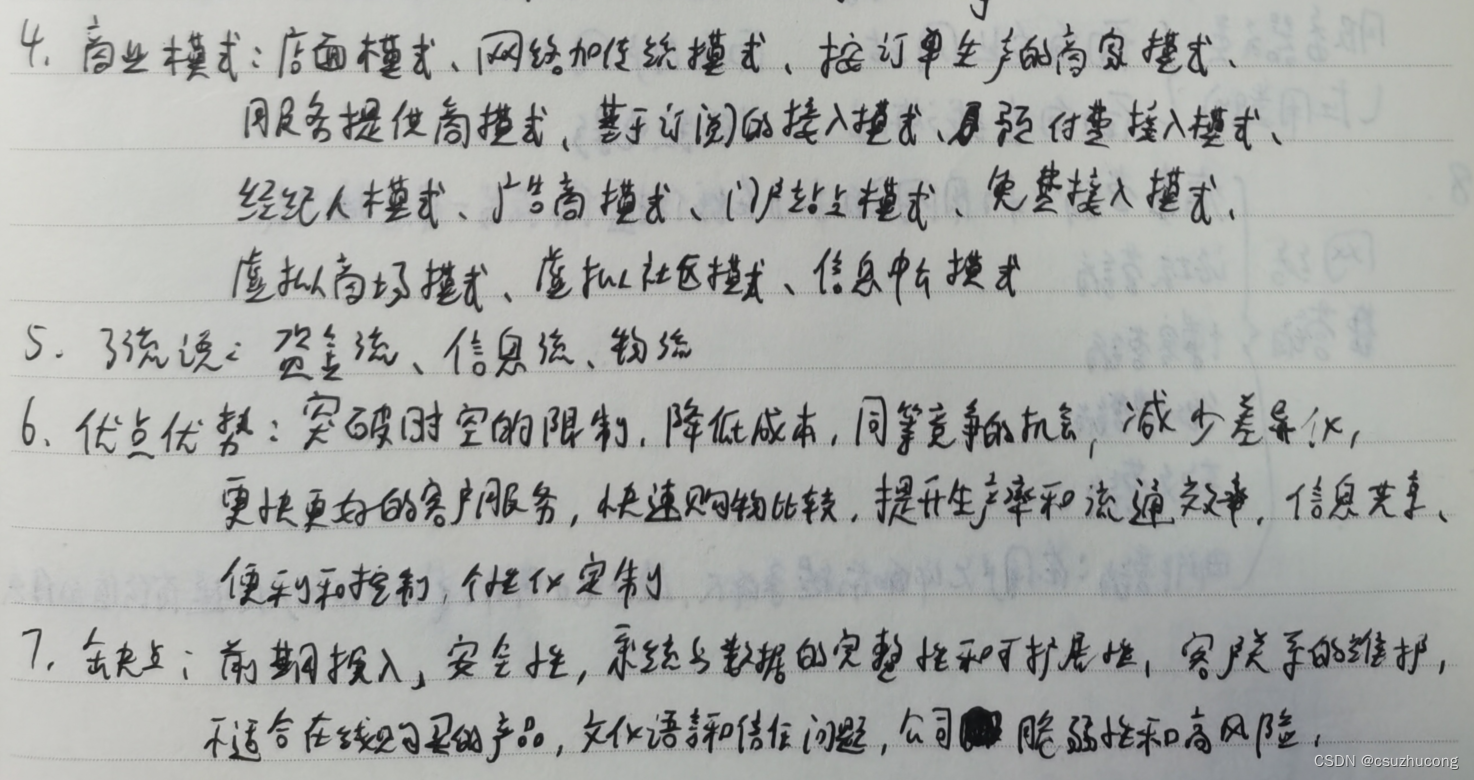 4. 商业模式：店面模式、网络加传统模式、按订单生产的商家模式、
服务提供商模式、基于订阅的接入模式、预付费接入模式、
经纪人模式、广告商模式、门户站点模式、免费接入模式、
虚拟商场模式、虚拟社区模式、信息中介模式
5. 3流说：资金流、信息流、物流
6. 优点优势：突破时空的限制，降低成本，同等竞争的机会，减少差异化，
更快更好的客户服务，快速购物比较，提升生产率和流通效率，信息共享、
便利和控制，个性化定制
7. 缺点：前期投入，安全性，系统与数据的完整性和可扩展性，客户关系的维护，
不适合在线购买的产品，文化语言和信任问题，公司脆弱性和高风险，
CSDN @csuzhucong